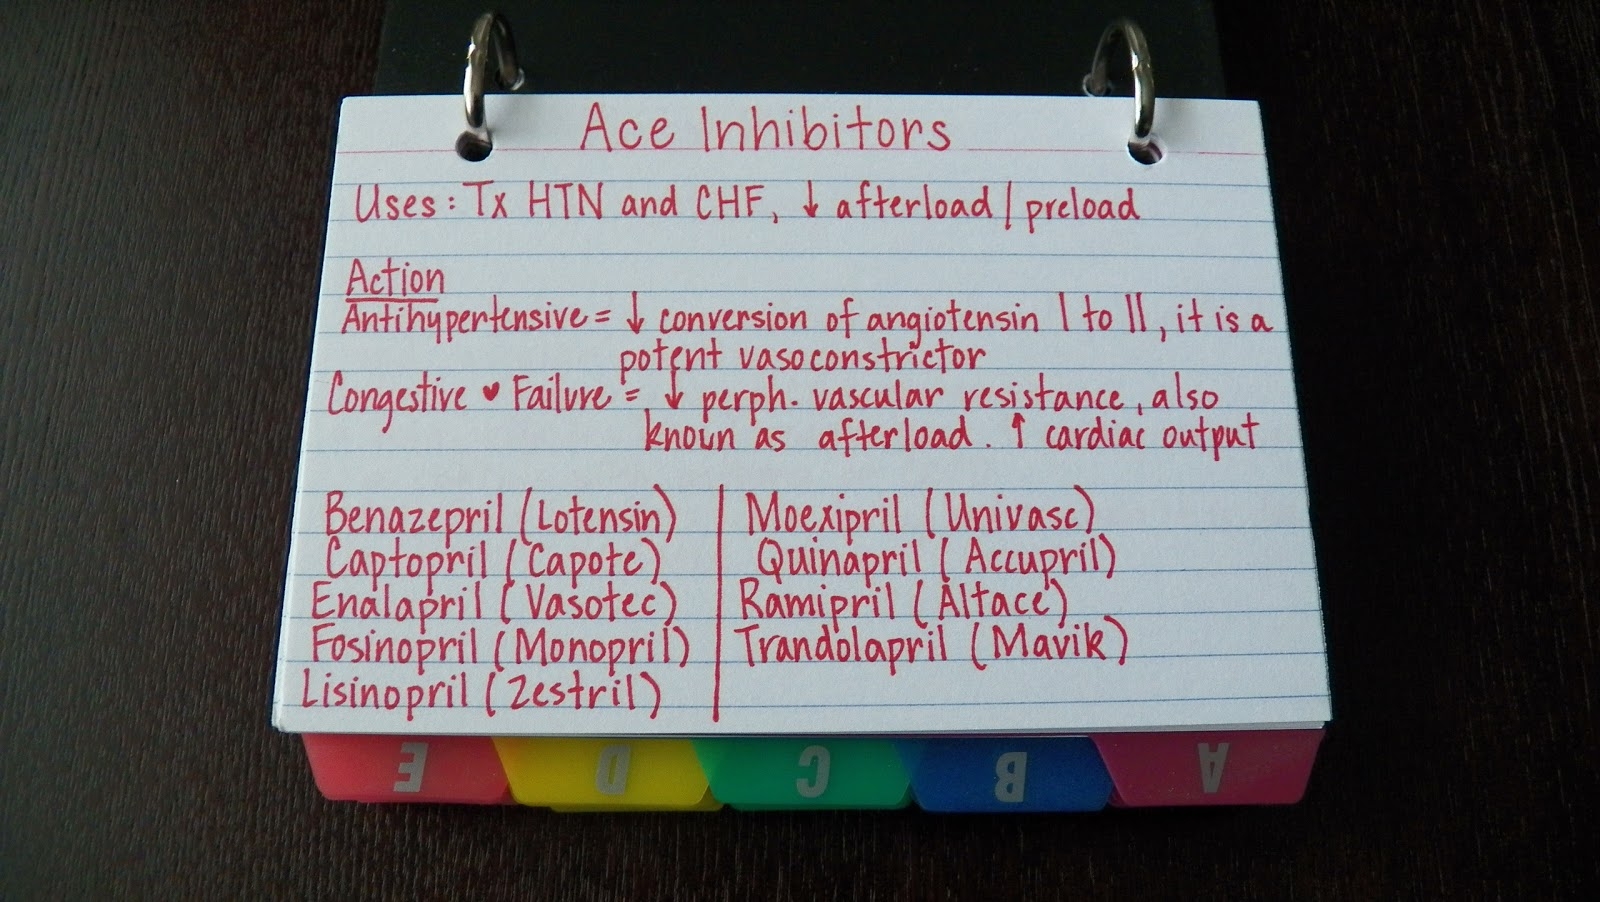 Ace Inhibitors
Uses: Tx HTN and CHF, ↓ afterload / preload
Action
Antihypertensive = ↓ conversion of angiotensin I to II, it is a
potent vasoconstrictor
Congestive ♥ Failure = ↓ perph. vascular resistance, also
known as afterload. ↑ cardiac output
Benazepril (Lotensin)
Captopril (Capote)
Enalapril (Vasotec)
Fosinopril (Monopril)
Lisinopril (Zestril)
Moexipril (Univasc)
Quinapril (Accupril)
Ramipril (Altace)
Trandolapril (Mavik)
E D C B A